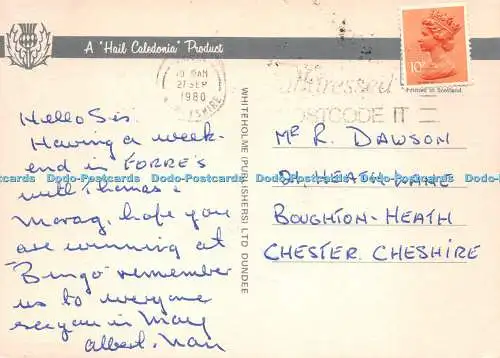 A "Hail Caledonia" Product
27 SEP
1980
10P
Printed in Scotland
addressed
POSTCODE IT
Hello Sis.
Having a week-
end in FORRE'S
with Thomas &
Morag, hope you
are winning at
"Bingo" remember
us to everyone
see you in May
Albert, Nan
WHITEHOLME (PUBLISHERS) LTD DUNDEE
MR R. DAWSON
HEATH LANE
BOUGHTON-HEATH
CHESTER. CHESHIRE
Dodo-Postcards Dodo-Postcards Dodo-Postcards Dodo-Postcards Dodo-Postcards Dodo-Postcards